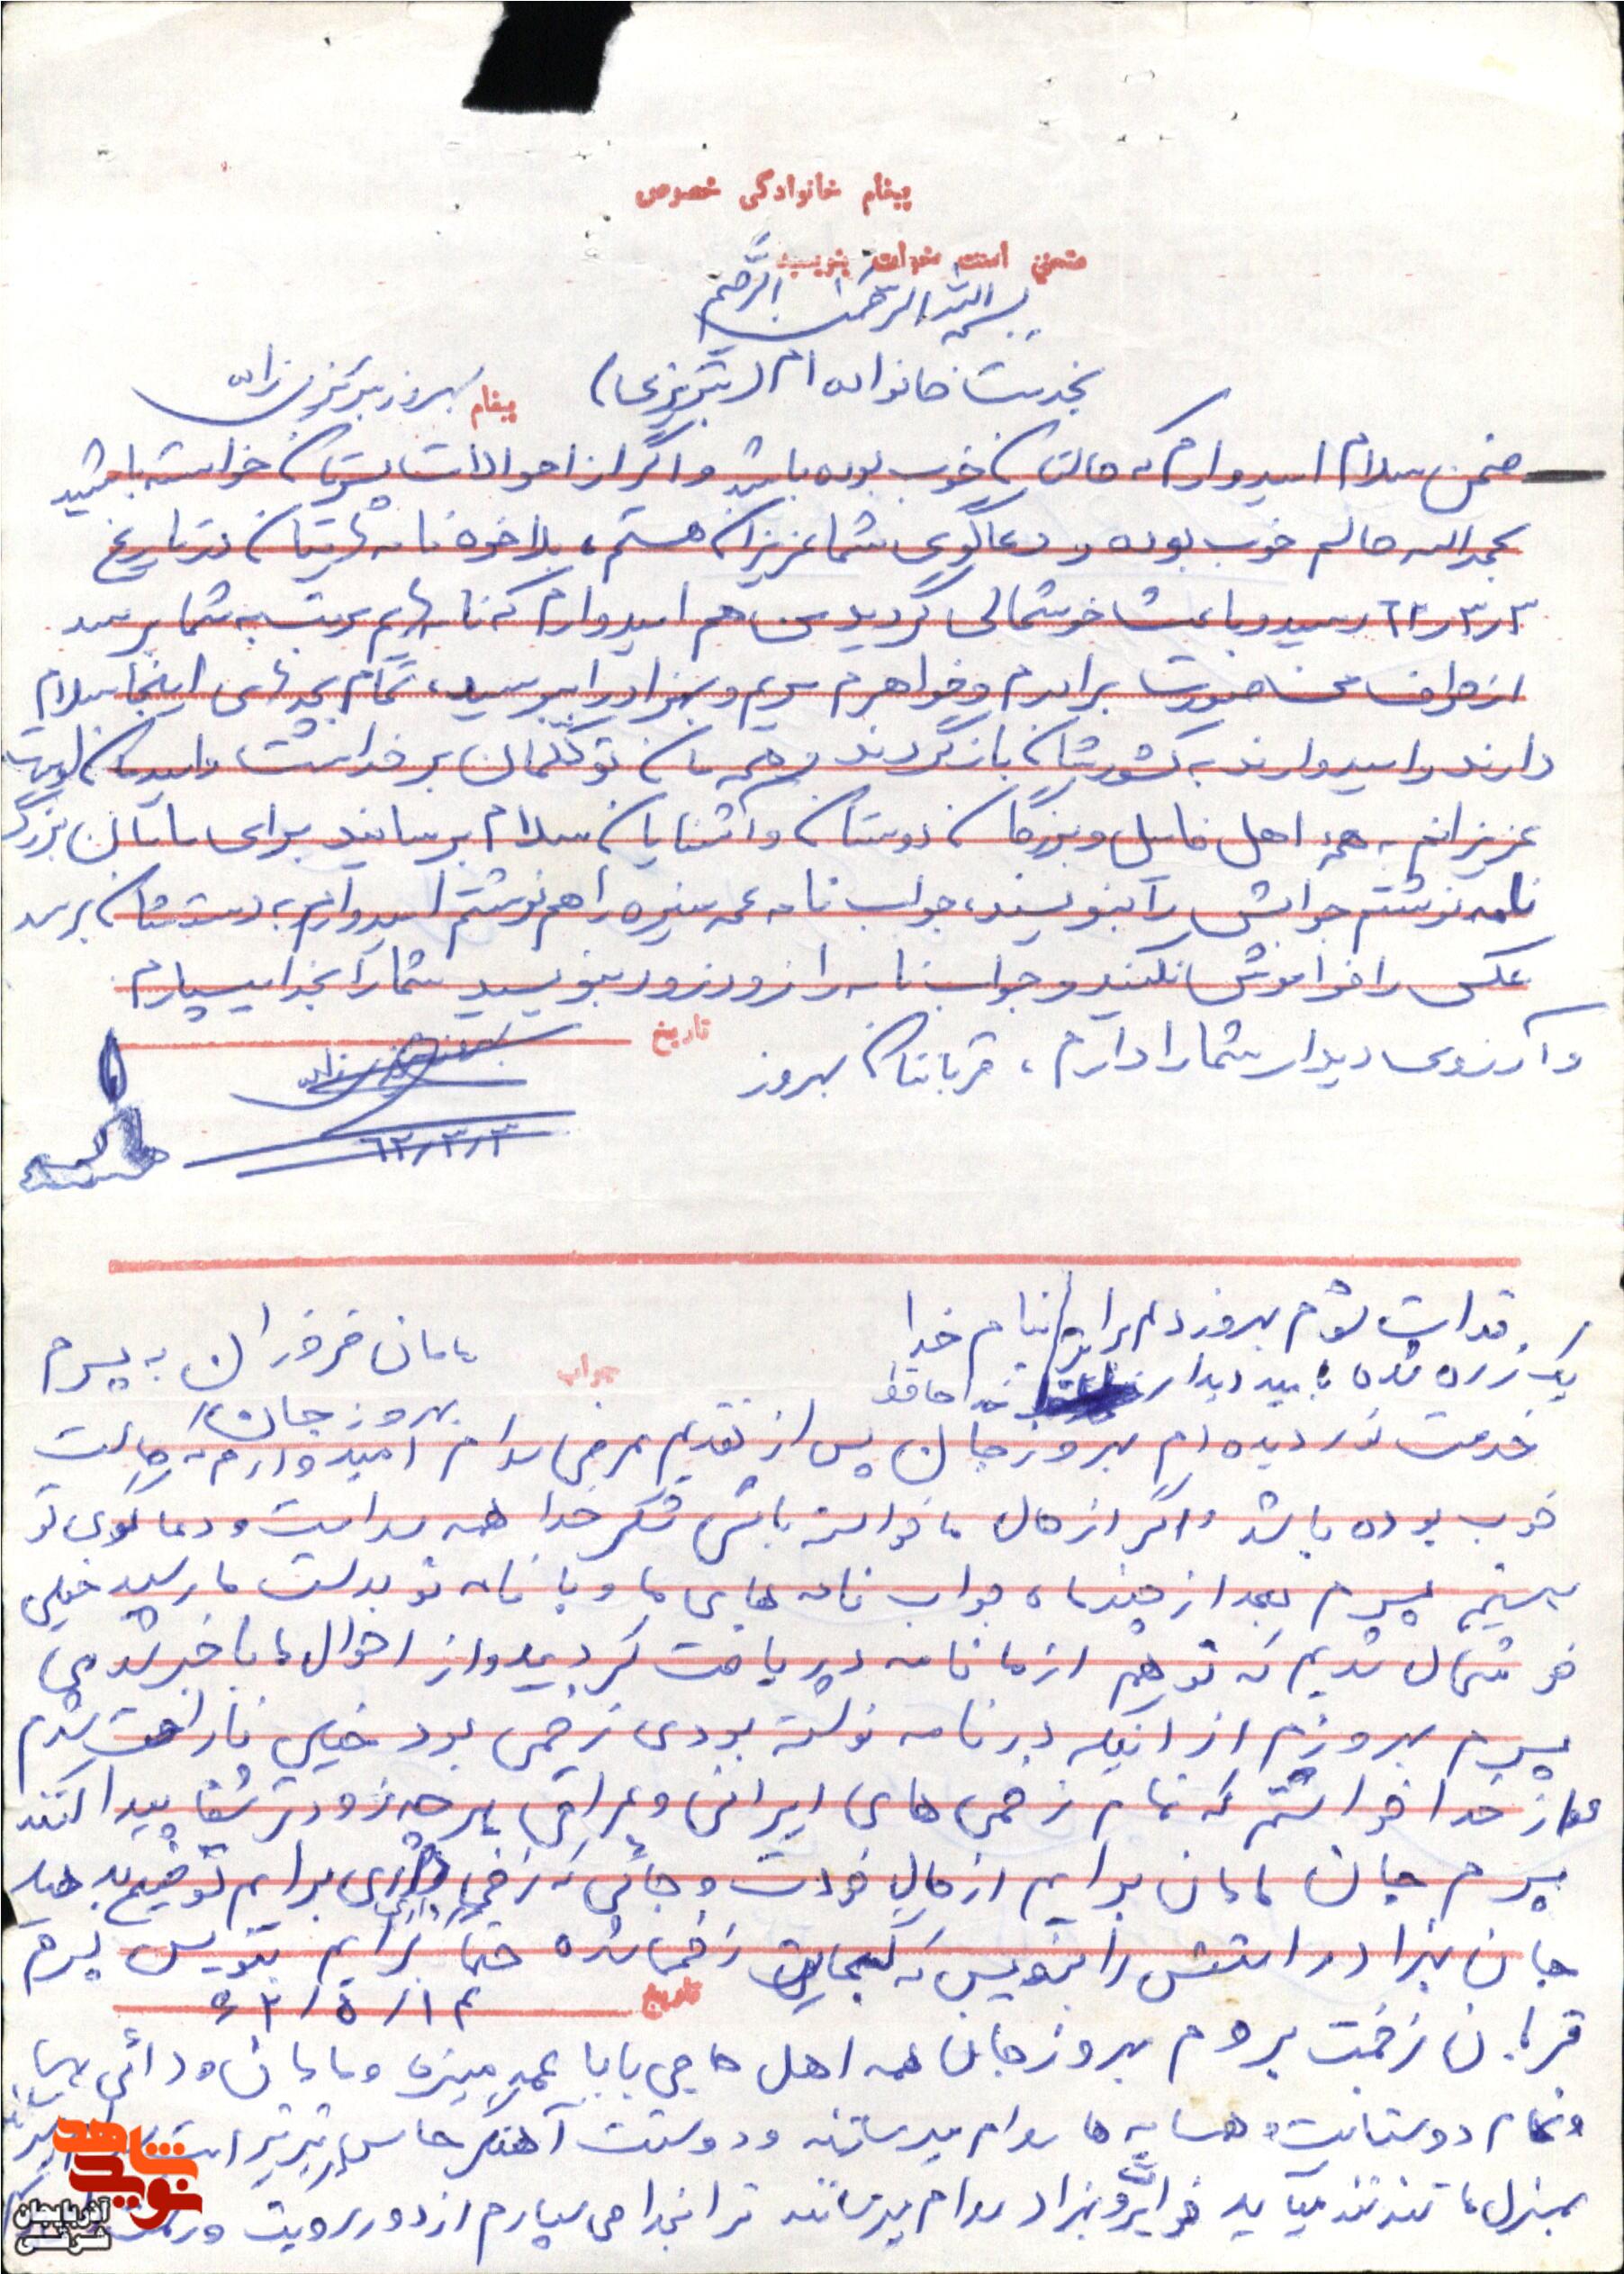 پیغام خانوادگی خصوصی
متمنی است خوانا بنویسید
بسم الله الرحمن الرحیم
بخدمت خانواده ام (تبریزی)
پیغام بهروز تبریزی زاده
ضمن سلام امیدوارم که حالتان خوب بوده باشد و اگر از احوالات پسرتان خواسته باشید
بحمدالله حالم خوب بوده و دعاگوی شما عزیزان هستم، بلاخره نامه هایتان در تاریخ
۶۲٫۳٫۳ رسید و باعث خوشحالی گردید من هم امیدوارم که نامه هایم مرتب به شما برسد
از طرف من صورت برادرم و خواهرم مریم و بهزاد را ببوسید، تمام بچه های اینجا سلام
دارند و امیدوارند به کشورشان بازگردند و همه مان توکلمان بر خداست و امیدمان اوست
عزیزانم به همه اهل فامیل و بزرگان دوستان و آشنایان سلام برسانید برای مامان بزرگ
نامه نوشتم جوابش را بنویسید، جواب نامه عمه منیره را هم نوشتم امیدوارم به دستشان برسد
عکس را فراموش نکنید و جواب نامه را زود زود بنویسید شما را بخدا میسپارم
و آرزوی دیدار شما را دارم، قربانتان بهروز
تاریخ
۶۲٫۳٫۳
فدایت شوم بهروز دلم برایت بنام خدا
یک زره شده بامید دیدار خدا حافظ
مامان فروزان به پسرم
جواب
بهروز جان
خدمت نور دیده ام بهروز جان پس از تقدیم عرض سلام امیدوارم که حالت
خوب بوده باشد و اگر از حال ما خواسته باشی شکر خدا همه سلامت و دعاگوی تو
هستیم پسرم بعد از چند ماه جواب نامه های ما و با نامه تو بدست ما رسید خیلی
خوشحال شدیم که تو هم از ما نامه دریافت کردید و از احوال ما با خبر شدی
پسرم بهروزم از اینکه در نامه نوشته بودی زخمی بود خیلی ناراحت شدم
از خدا خواستم که تمام زخمی های ایرانی و عراقی هر چه زودتر شفا پیدا کنند
پسرم جان مامان برایم از حال خودت و جائی که زخمی داری برایم توضیح بدهید
جان بهزاد راستش را بنویس که کجایت زخمی شده حتما برایم بنویس پسرم
تاریخ ۶۲/۵/۱۴
قربان زخمت بروم بهروز جان همه اهل حاجی بابا عمه منیره و مامان و دائی
و تمام دوستانت و همسایه ها سلام میرسانند و دوستت آهنگر
بمنزل ما تند تند میآید خواهرت و بهزاد سلام میرسانند ترا بخدا می سپارم از دور رویت
نوید شاهد
آذربایجان شرقی